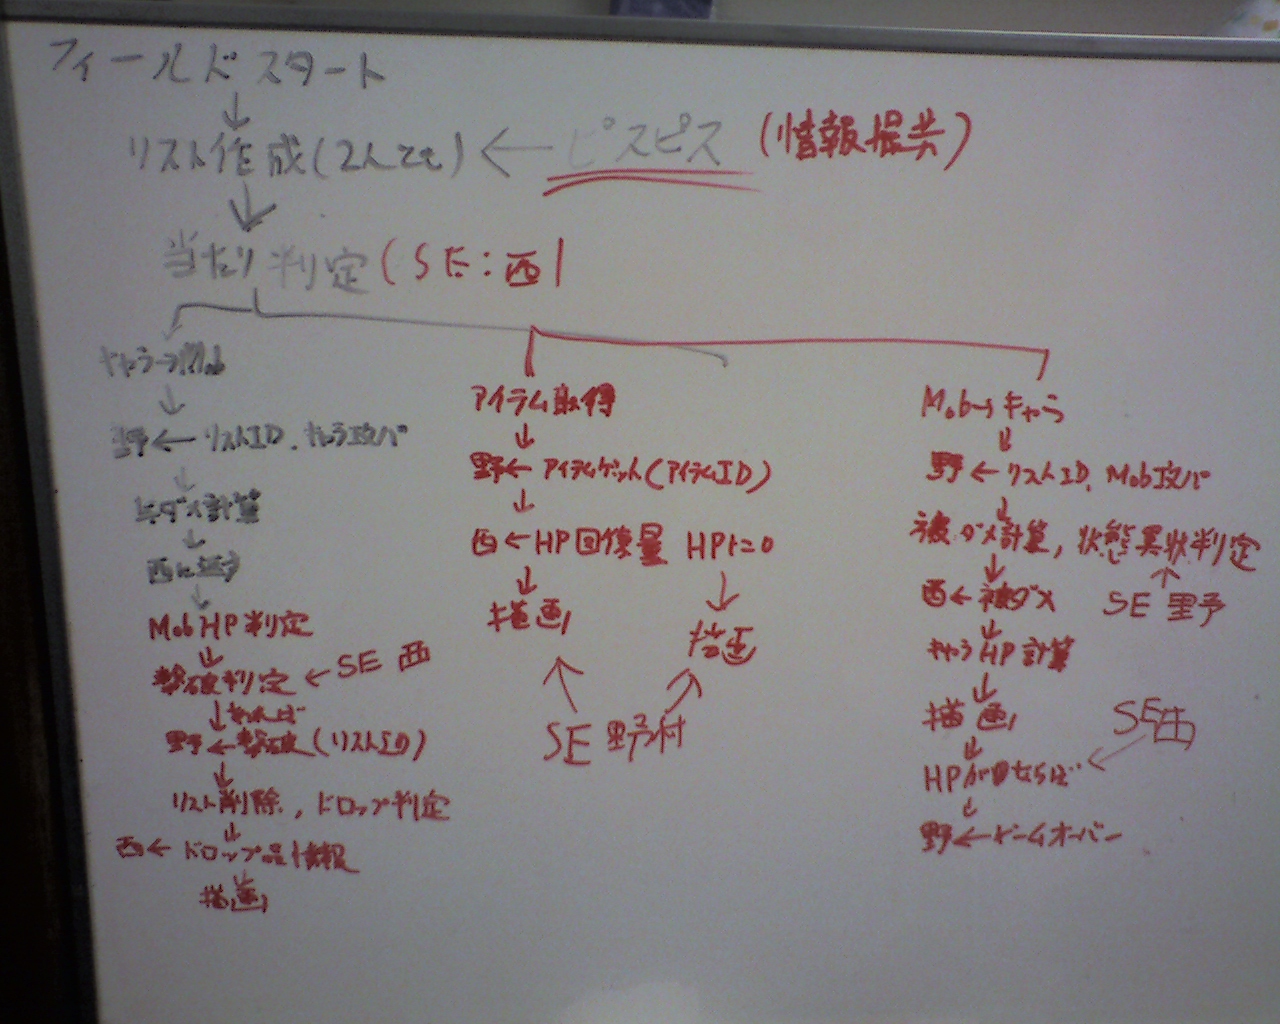 フィールドスタート
↓
リスト作成(2人とも) ← ピスピス (情報提供)
↓
当たり判定(SE:西)
キャラ→Mob
↓
野← リストID、キャラ攻パ
↓
与ダメ計算
↓
西に返す
↓
Mob HP 判定
↓
撃破判定 ← SE 西
↓ あれば
野←撃破(リストID)
↓
リスト削除, ドロップ判定
↓
西← ドロップ品情報
↓
描画
アイテム取得
↓
野← アイテムゲット(アイテムID)
↓
西←HP回復量
↓
描画
HPト=0
↓
描画
SE 野村
Mob→キャラ
↓
野←リストID、Mob攻パ
↓
被ダメ計算, 状態異状判定
↑
SE 野
↓
西←被ダメ
↓
キャラHP計算
↓
描画
↓
HPが0ならば ← SE西
↓
野←ゲームオーバー